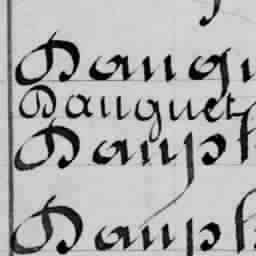 Daugu
Dauguet
Dauph
Dauph